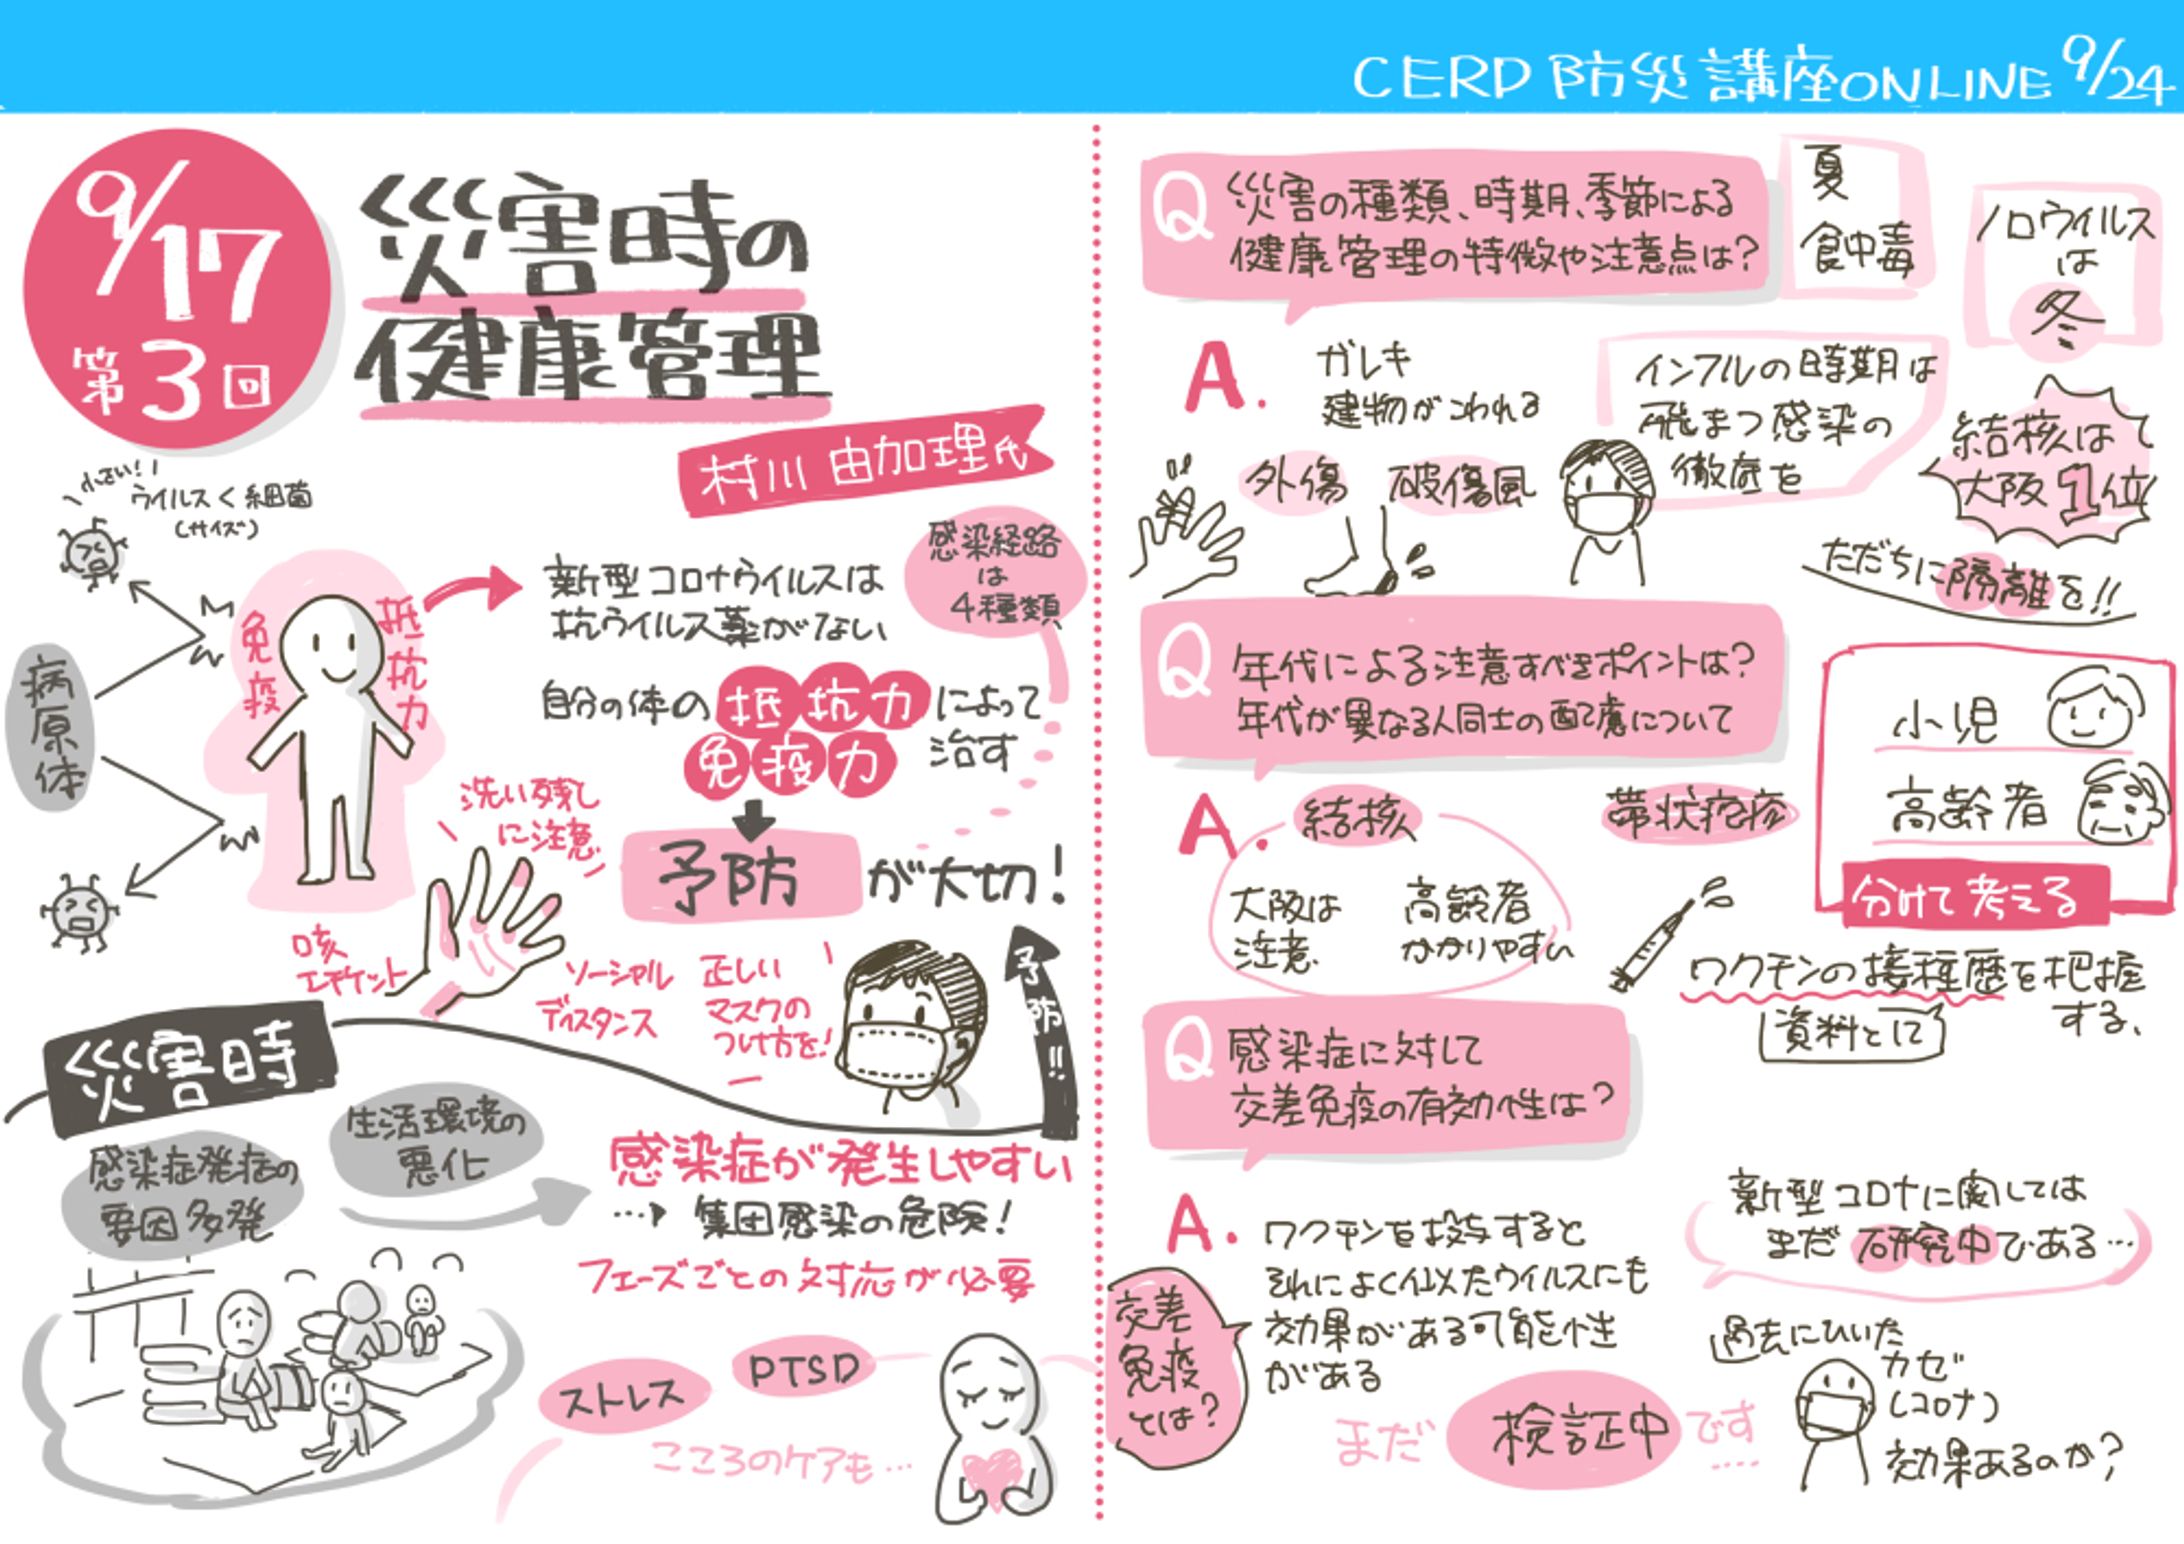 CERD 防災講座ONLINE 9/24
9/17
第3回
災害時の
健康管理
村川 由加理氏
小さい!!
ウイルス<細菌
(サイズ)
病原体
免疫
抵抗力
新型コロナウイルスは
抗ウイルス薬がない
感染経路
は
4種類
自分の体の抵抗力によって
免疫力 治す
予防が大切!
洗い残し
に注意
咳
エチケット
ソーシャル
ディスタンス
正しい
マスクの
つけ方を!
予防!!
災害時
感染症発症の
要因多発
生活環境の
悪化
感染症が発生しやすい
…▶ 集団感染の危険!
フェーズごとの対応が必要
ストレス
PTSD
こころのケアも…
Q 災害の種類、時期、季節による
健康管理の特徴や注意点は?
夏
食中毒
ノロウイルス
は
冬
A.
ガレキ
建物がこわれる
外傷
破傷風
インフルの時期は
飛まつ感染の
徹底を
結核は
大阪1位
ただちに隔離を!!
Q 年代による注意すべきポイントは?
年代が異なる人同士の配慮について
小児
高齢者
分けて考える
A.
結核
大阪は
注意
高齢者
かかりやすい
帯状疱疹
ワクチンの接種歴を把握
する、
資料として
Q 感染症に対して
交差免疫の有効性は?
A.
ワクチンを投与すると
それによく似たウイルスにも
効果がある可能性
がある
交差
免疫
とは?
新型コロナに関しては
まだ研究中である…
まだ 検証中 です……
過去にひいた
カゼ
(コロナ)
効果あるのか?